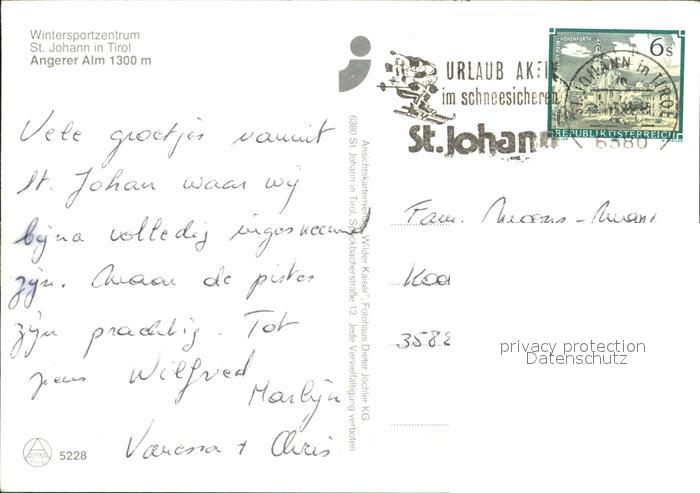 Wintersportzentrum
St. Johann in Tirol
Angerer Alm 1300 m
URLAUB AKTIV
im schneesicheren
St. Johann
ST. JOHANN in TIROL
6380
6 s
REPUBLIK ÖSTERREICH
Vele groetjes vanuit
St. Johan waar wij
bijna volledig ingesneeuwd
zijn. Maar de pistes
zijn prachtig. Tot
ziens Wilfred
Marlijn
Vanessa + Chris
Ansichtskartenverlag "Wilder Kaiser", Fotohaus Dieter Jöchler KG
6380 St. Johann in Tirol, Speckbacherstraße 12. Jede Vervielfältigung verboten
Fam.
3582
privacy protection
Datenschutz
5228